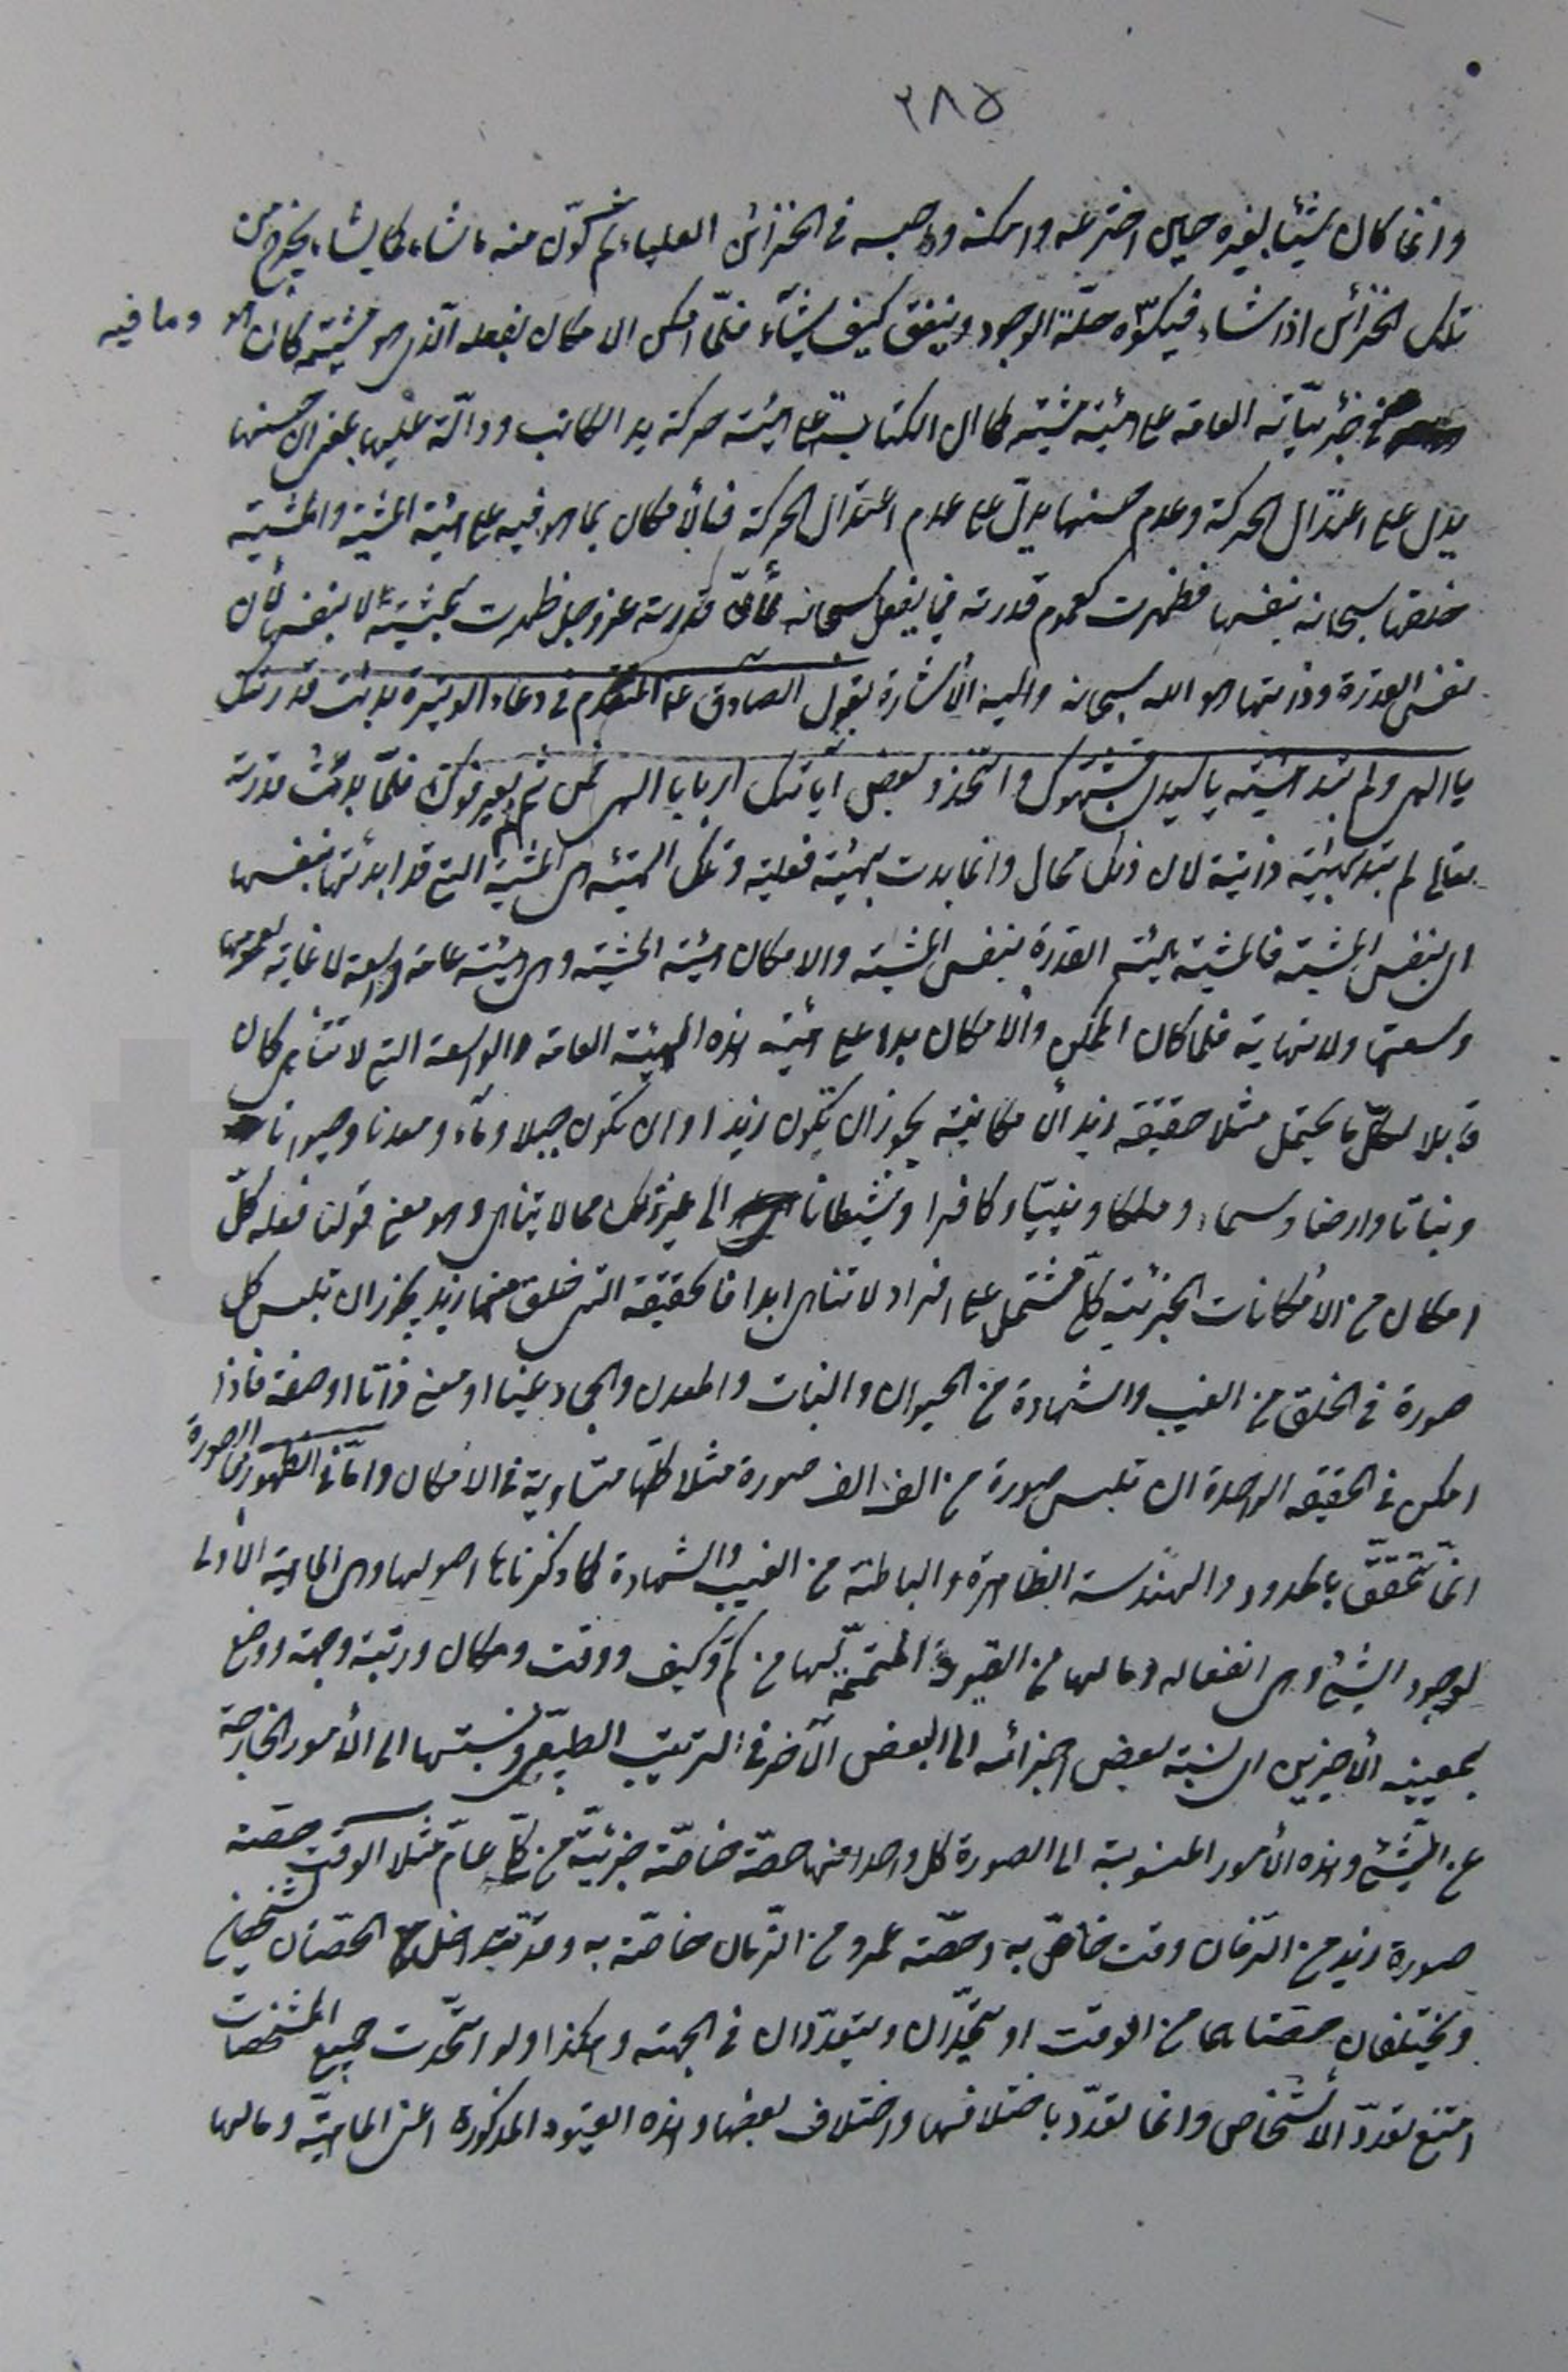 ٣٨٥
وانما كان شيئا بغيره حين اخترعه وامكنه وحبسه فى الخزائن العلياء ثم كوّن منه ما شاء كما يشاء يخرج من
تلك الخزائن اذا شاء فيكسوه حلّة الوجود وينفق كيف يشآء فلمّا امكن الامكان بفعله الّذى هو مشيّته كان هو وما فيه
من جزئيّاته العامة على هيئة مشيته كما ان الكتابة على هيئة حركة يد الكاتب ودالّة عليها بمعنى ان حسنها
يدل على اعتدال الحركة وعدم حسنها يدلّ على عدم اعتدال الحركة فالأمكان بما هو فيه على هيئة المشية والمشية
خلقها سبحانه بنفسها فظهرت كعموم قدرته فيما يفعل سبحانه لأنّ قدرته عز وجل ظهرت بمشيته لا بنفسها لأن
نفس القدرة وذاتها هو الله سبحانه واليه الأشارة بقول الصادق ع المتقدم فى دعاء الوتيرة بدئت قدرتك
يا الهى ولم تبد هيئته يا سيدى فشبّهوك واتّخذوا بعض آياتك اربابا يا الهى فمن ثم لم يعرفوك فلمّا بدئت قدرته
تعالى لم تبد بهيئة ذاتية لان ذلك محال وانما بدت بهيئة فعلية وتلك الهيئة هى المشية التى قد ابدئتها بنفسها
اى بنفس المشية فالمشية هيئة القدرة بنفس المشية والامكان هيئة المشية وهى هيئة عامة واسعة لا غاية لعمومها
وسعتها ولا نهاية فلما كان الممكن والأمكان بدا على هيئة هذه الهيئة العامة والواسعة التى لا تتناهى كان
قابلا لكلّ ما يحتمل مثلا حقيقة زيد الأمكانية يجوز ان يكون زيدا او ان تكون جبلا ومآء ومعدنا وحيوانا
ونباتا وارضا وسماء وملكا ونبيّا وكافرا وشيطانا الى غير ذلك مما لا يتناهى وهو معنى قولنا فعله كلّ
امكان من الأمكانات الجزئية كلّى مشتمل على افراد لا تتناهى ابدا فالحقيقة التى خلق منها زيد يجوز ان تلبس كل
صورة فى الخلق من الغيب والشهادة من الحيوان والنبات والمعدن والجماد عينا او معنى ذاتا او صفة فاذا
امكن فى الحقيقة الواحدة ان تلبس صورة من الف الف صورة مثلا كلّها متساوية فى الامكان وامّا فى الظهور فى الصورة
انّما تتحقّق بالحدود والهندسة الظاهرة والباطنة من الغيب والشهادة كما ذكرنا اصولها وهى الماهية الأولى
لوجود الشئ وهى انفعاله وما لها من القيود المتمّمة لها من كمّ وكيف ووقت ومكان ورتبة وجهة ووضع
بمعنييه الأخيرين اى نسبة بعض اجزائه الى البعض الآخر فى الترتيب الطبيعى ونسبتها الى الأمور الخارجة
عن الشئ وهذه الأمور المنسوبة الى الصورة كل واحد منها حصّة خاصّة جزئيّة من كلّى عامّ مثلا الوقت حصة
صورة زيد من الزمان وقت خاصّ به وحصّة عمرو من الزمان خاصّة به وقد تتداخل الحصّتان
ويختلفان حصتاهما من الوقت او يتحدان ويتعدّدان فى الجهة وهكذا ولو اتحدت جميع المشخصات
امتنع تعدّد الأشخاص وانما تعدّد باختلافها واختلاف بعضها وهذه القيود المذكورة اعنى الماهيّة وما لها